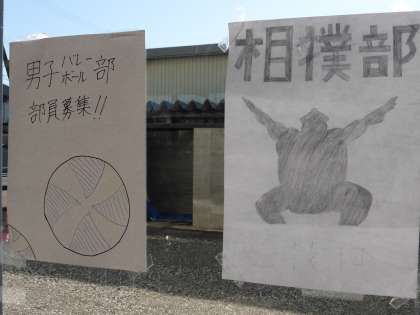 男子バレーボール部
部員募集!!
相撲部